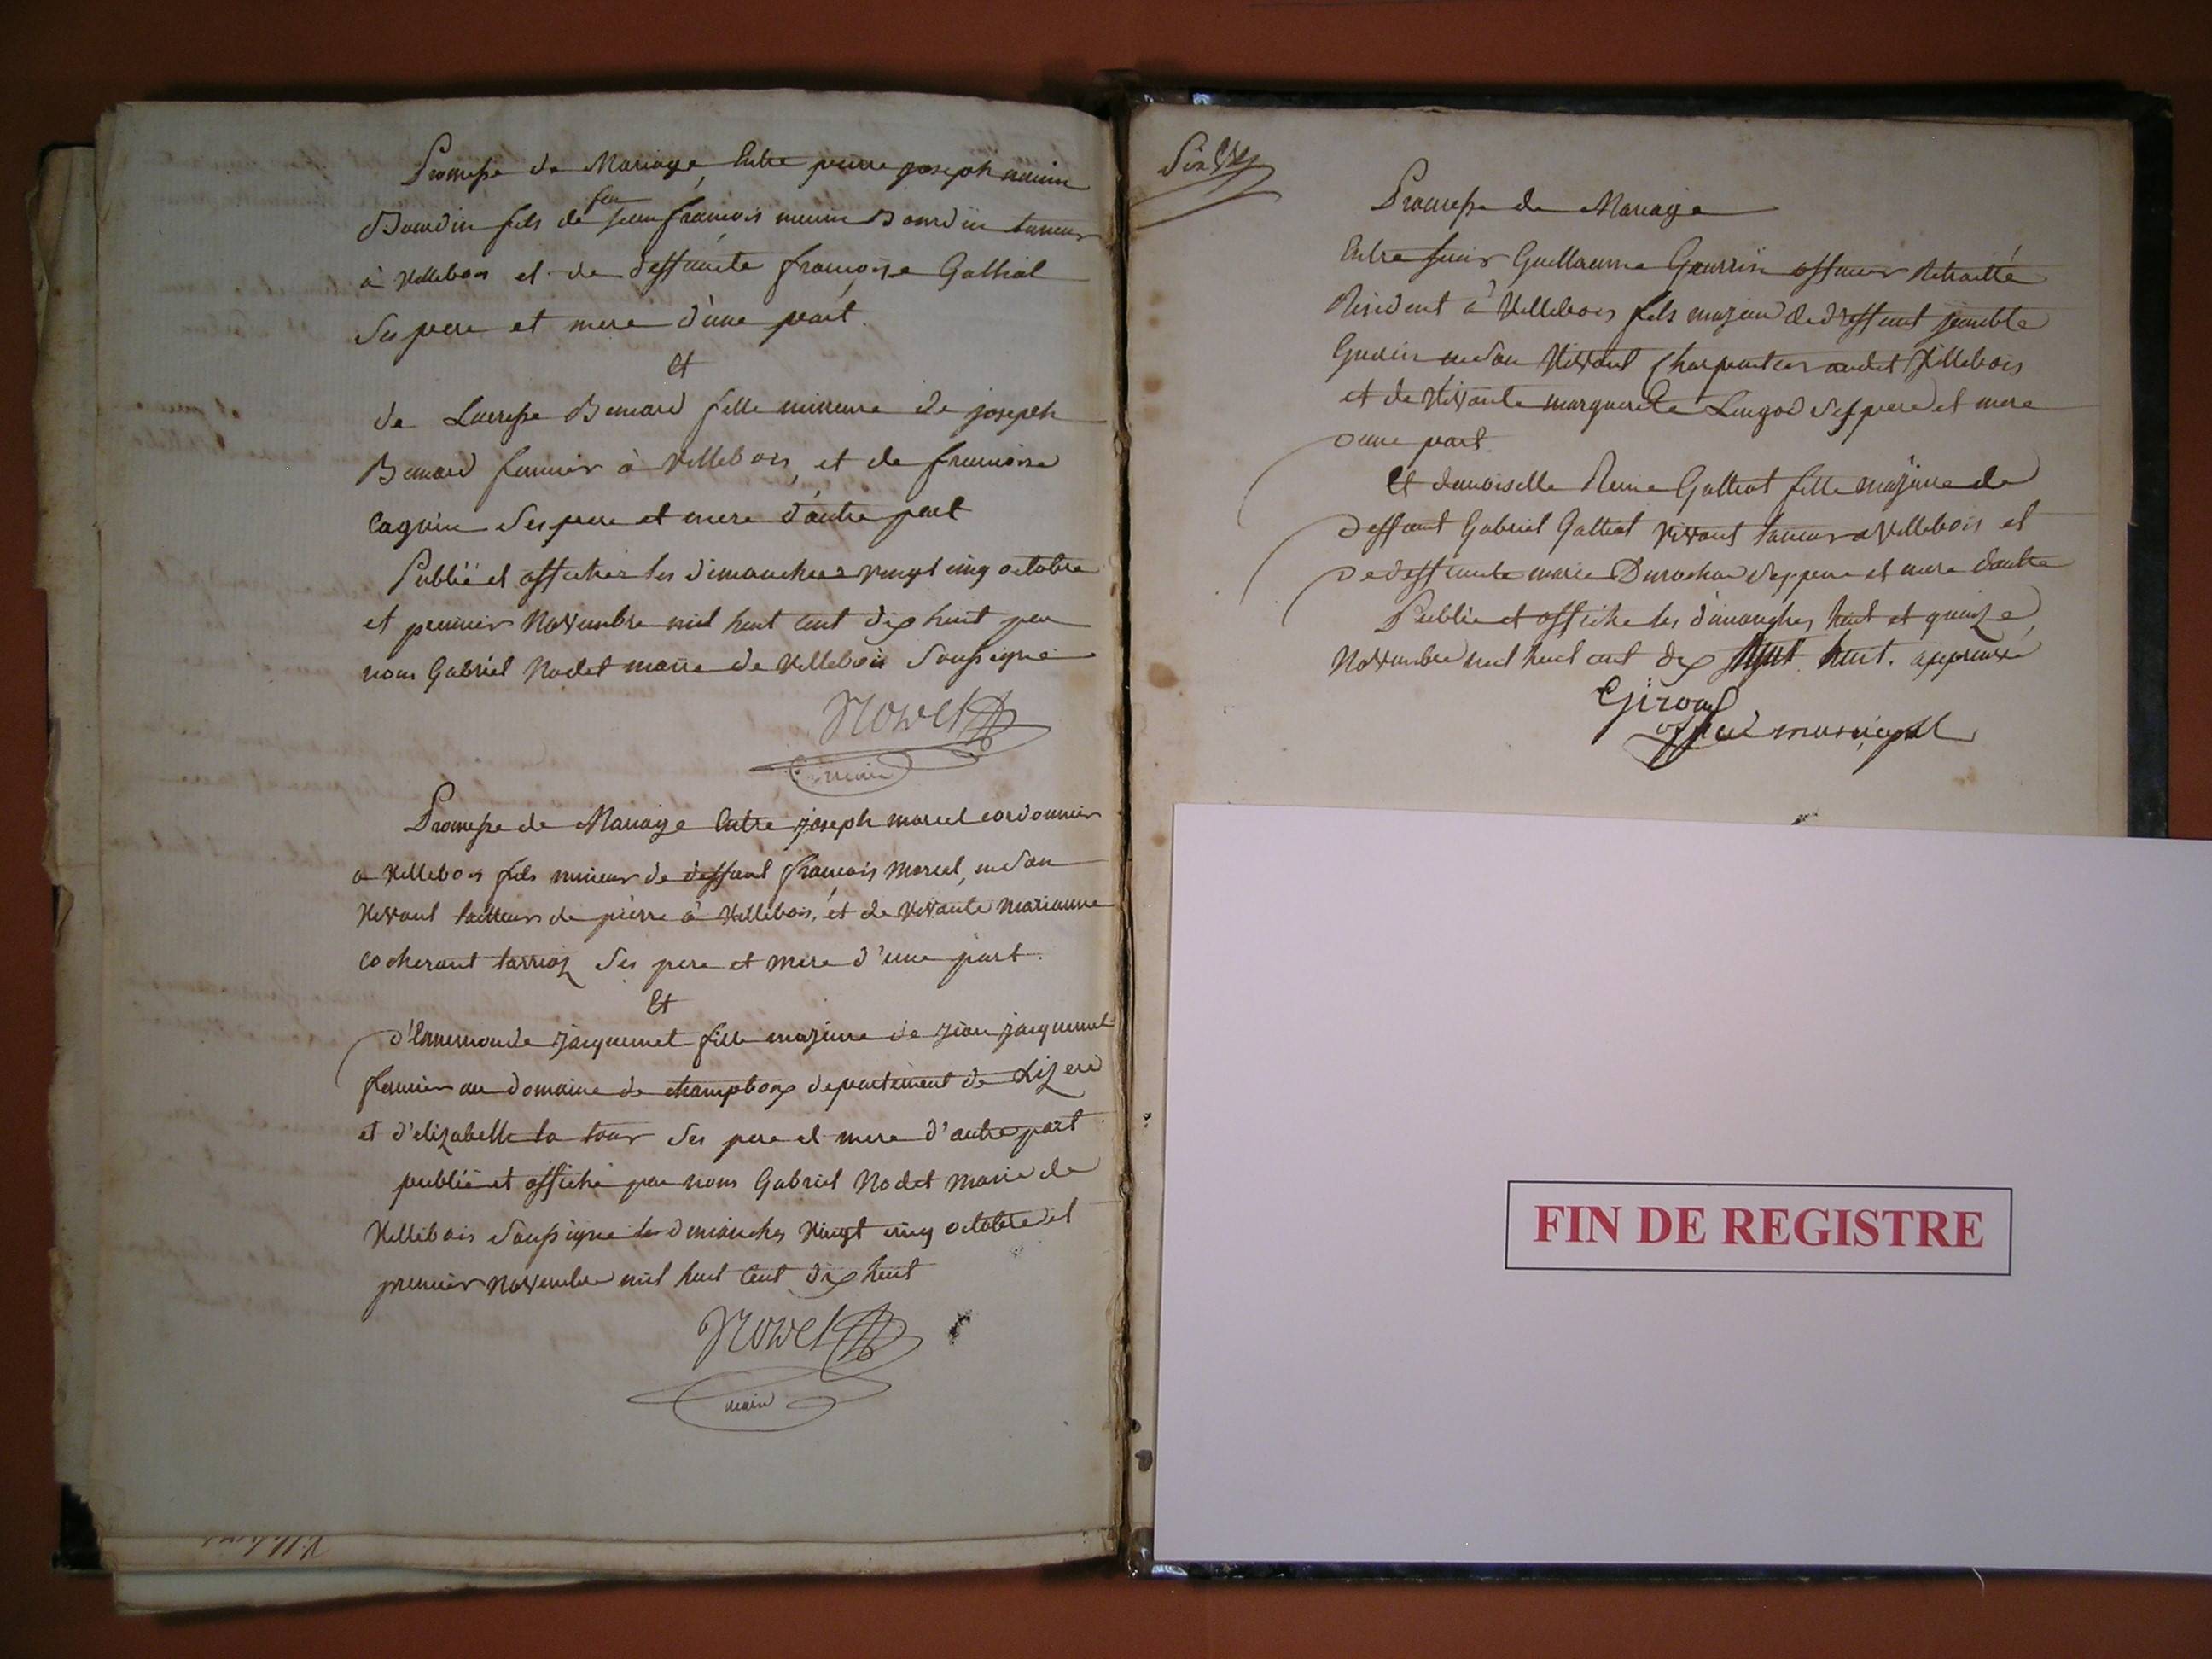 Promesse de Mariage, Entre pierre joseph
Bourdin fils de feu jean françois Bourdin tanneur
à Villebois et de deffuncte françoise Galliot
Ses pere et mere d'une part.
Et
de Lucresse Bernard fille mineure de joseph
Bernard fermier à Villebois, et de francoise
Ses pere et mere d'autre part
Publié et affiches les dimanches vingt cinq octobre
et premier Novembre mil huit cent dix huit par
nous Gabriël Nodet maire de Villebois Soussigné
Nodet
maire
Promesse de Mariage Entre joseph marcel cordonnier
a Villebois fils mineur de deffunt françois Marcel, en son
Vivant tailleur de pierre à Villebois, et de Vivante marianne
cocherant Ses pere et mere d'une part.
Et
d'Ennemonde jacquemet fille majeure de jean jacquemet
fermier au domaine de departement de Lizere
et d'elizabelle la tour Ses pere et mere d'autre part
publié et affiché par nous Gabriel Nodet Maire de
Villebois Soussigné les dimanches Vingt cinq octobre et
premier Novembre mil huit Cent dix huit
Nodet
maire
Six
Promesse de Mariage
Entre sieur Guillaume officier Retraitté
Résident à Villebois fils majeur de deffunt
en son Vivant Charpentier audit Villebois
et de Vivante marguerite Ses pere et mere
d'une part.
Et demoiselle Reine Galliot fille majeure de
deffunt Gabriel Galliot Vivant tanneur a Villebois et
de deffuncte marie Ses pere et mere d'autre
Publié et affiché les dimanches huit et quinze
Novembre mil huit cent dix huit. approuvé
Giroud
officié municipal
FIN DE REGISTRE